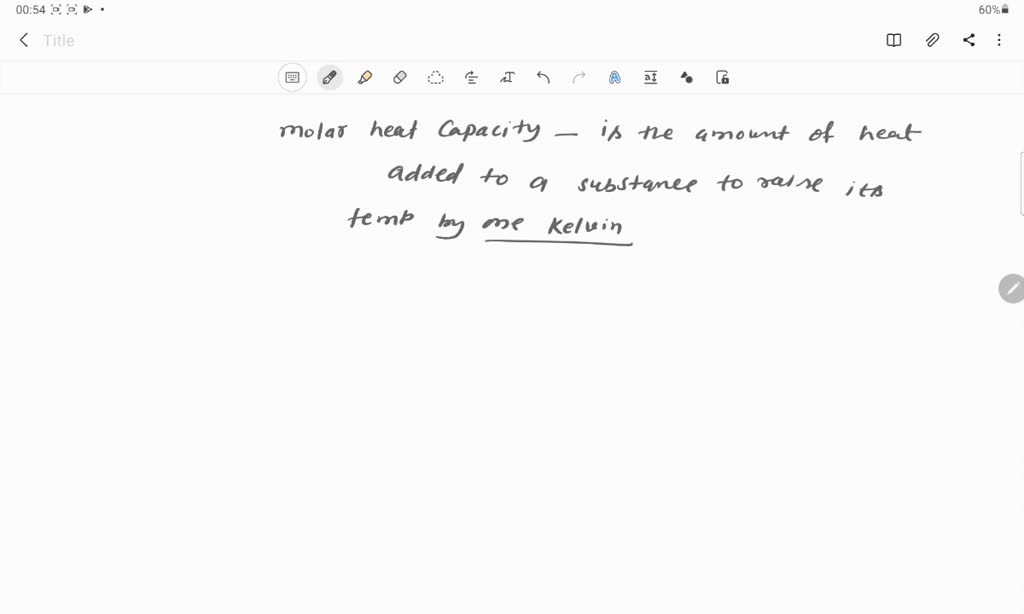 00:54
60%
Title
molar heat Capacity – is the amount of heat
added to a substance to raise its
temp by one Kelvin